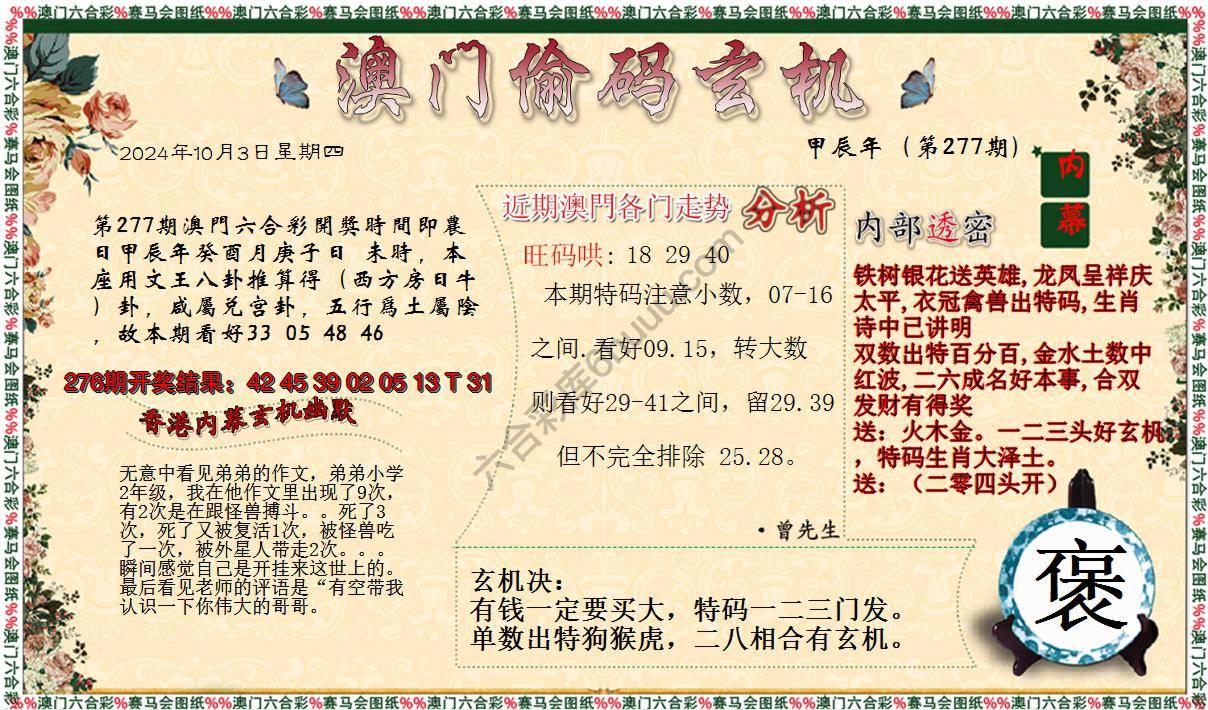 %%澳门六合彩%赛马会图纸%%澳门六合彩%赛马会图纸%%澳门六合彩%赛马会图纸%%澳门六合彩%赛马会图纸%%澳门六合彩%赛马会图纸%%澳门六合彩%赛马会图纸%%
澳门偷码玄机
2024年10月3日星期四
甲辰年（第277期）
内幕
第277期澳門六合彩開獎時間即農
日甲辰年癸酉月庚子日 未時，本
座用文王八卦推算得（西方房日牛
）卦，咸屬兑宫卦，五行爲土屬陰
，故本期看好33 05 48 46
276期开奖结果：42 45 39 02 05 13 T 31
香港内幕玄机幽默
无意中看见弟弟的作文，弟弟小学
2年级，我在他作文里出现了9次，
有2次是在跟怪兽搏斗。。死了3
次，死了又被复活1次，被怪兽吃
了一次，被外星人带走2次。。。
瞬间感觉自己是开挂来这世上的。
最后看见老师的评语是“有空带我
认识一下你伟大的哥哥。
近期澳門各门走势 分析
旺码哄: 18 29 40
本期特码注意小数，07-16
之间.看好09.15，转大数
则看好29-41之间，留29.39
但不完全排除 25.28。
·曾先生
内部透密
铁树银花送英雄,龙凤呈祥庆
太平,衣冠禽兽出特码,生肖
诗中已讲明
双数出特百分百,金水土数中
红波,二六成名好本事,合双
发财有得奖
送：火木金。一二三头好玄机
，特码生肖大泽土。
送：（二零四头开）
玄机决：
有钱一定要买大，特码一二三门发。
单数出特狗猴虎，二八相合有玄机。
褒
%%澳门六合彩%赛马会图纸%%澳门六合彩%赛马会图纸%%澳门六合彩%赛马会图纸%%澳门六合彩%赛马会图纸%%澳门六合彩%赛马会图纸%%澳门六合彩%赛马会图纸%%